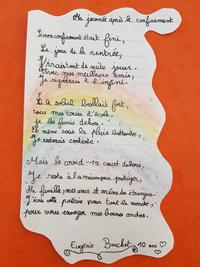 Ma journée après le confinement
Si mon confinement était fini,
Le jour de la rentrée,
J'irais tout de suite jouer
Avec mes meilleurs amis,
Je rigolerais à l'infini.
Si le soleil brillait fort,
tous mes cours d'école,
je les ferais dehors.
Et même sous la pluie battante,
Je resterais contente.
Mais le covid-19 court dehors,
Je reste à la maison pour protéger,
Ma famille, mes amis et même les étrangers.
J'écris cette poésie pour tout le monde,
pour vous envoyer mes bonnes ondes.
Eugénie Bouchet 10 ans